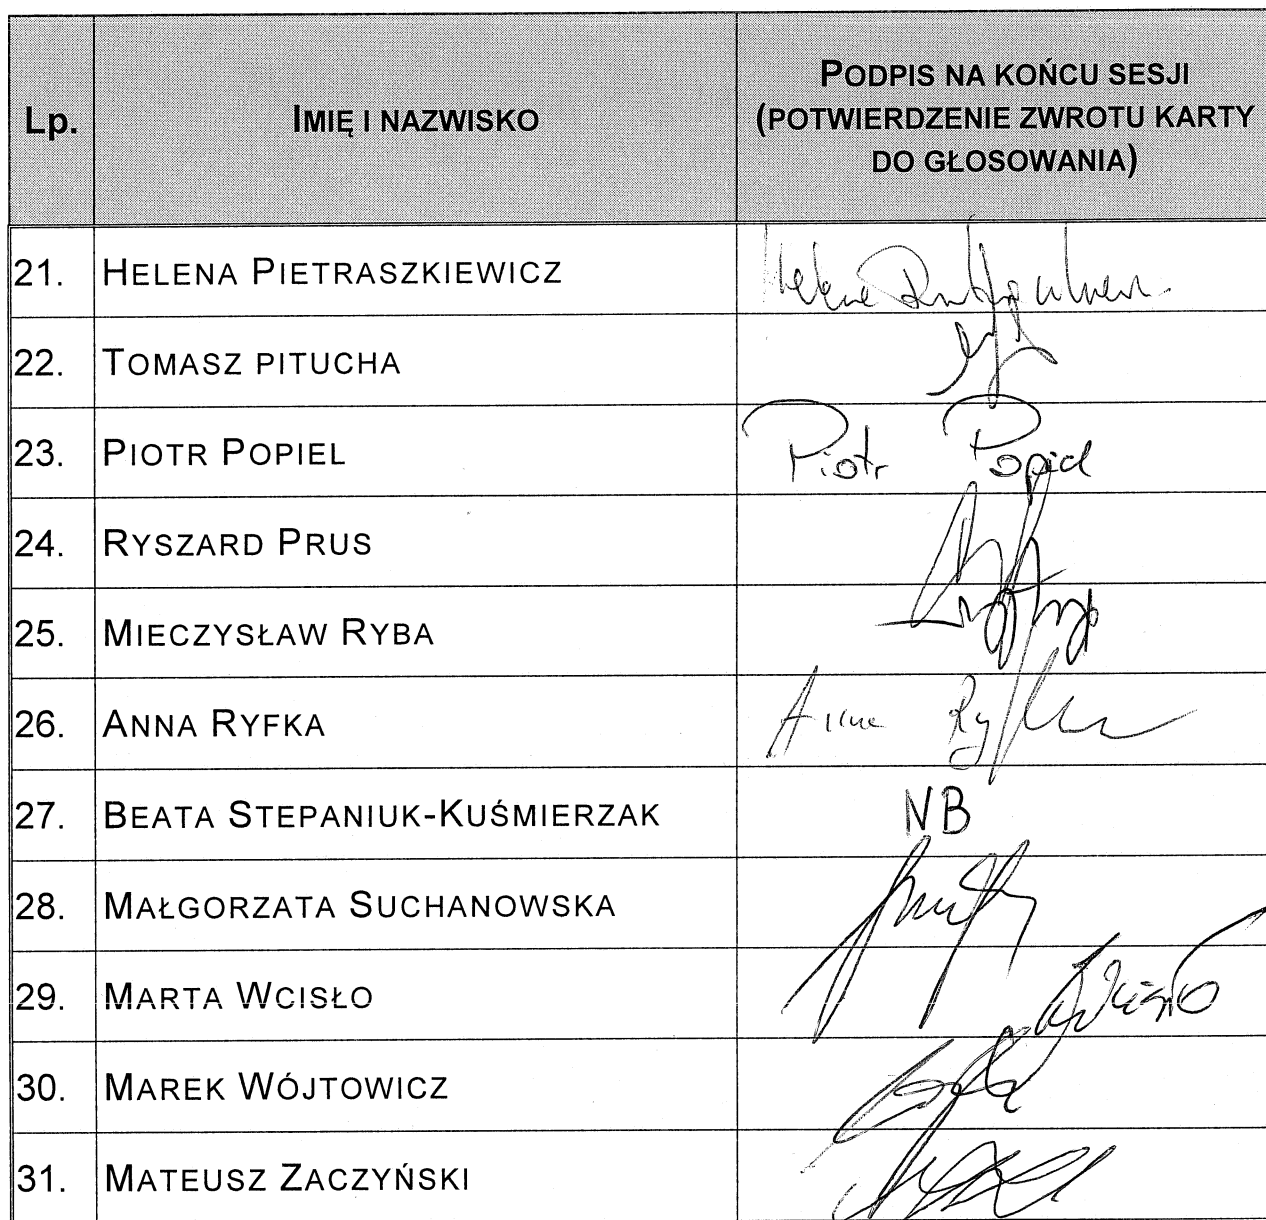 Lp. IMIĘ I NAZWISKO PODPIS NA KOŃCU SESJI
(POTWIERDZENIE ZWROTU KARTY
DO GŁOSOWANIA)
21. HELENA PIETRASZKIEWICZ
22. TOMASZ PITUCHA
23. PIOTR POPIEL Piotr Popiel
24. RYSZARD PRUS
25. MIECZYSŁAW RYBA
26. ANNA RYFKA Anna Ryfka
27. BEATA STEPANIUK-KUŚMIERZAK NB
28. MAŁGORZATA SUCHANOWSKA
29. MARTA WCISŁO Wcisło
30. MAREK WÓJTOWICZ
31. MATEUSZ ZACZYŃSKI